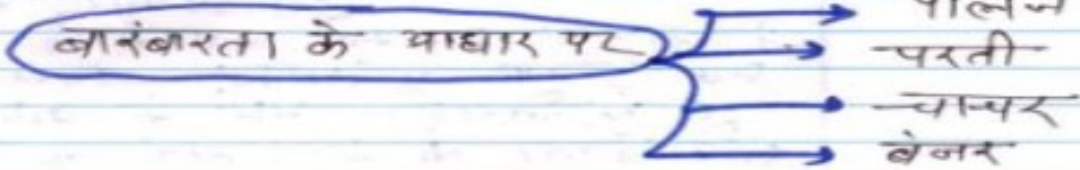 बारंबारता के आधार पर
पोलज
परती
चाचर
बंजर